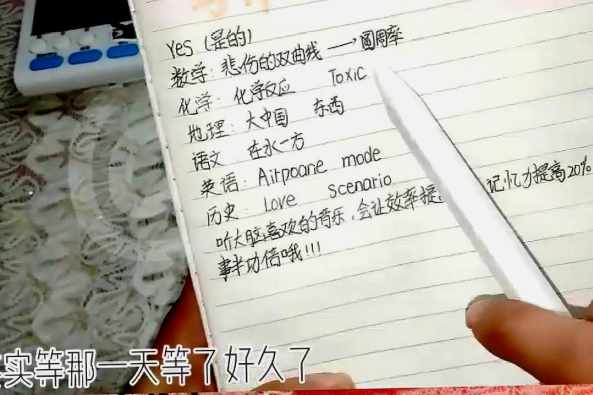 Yes (是的)
数学: 悲伤的双曲线 → 圆周率
化学: 化学反应 Toxic
地理: 大中国 东西
语文 在水一方
英语: Airpoane mode
历史: love scenario
听大脑喜欢的音乐,会让效率提 记忆力提高20%
事半功倍哦!!!
实等那一天等了好久了